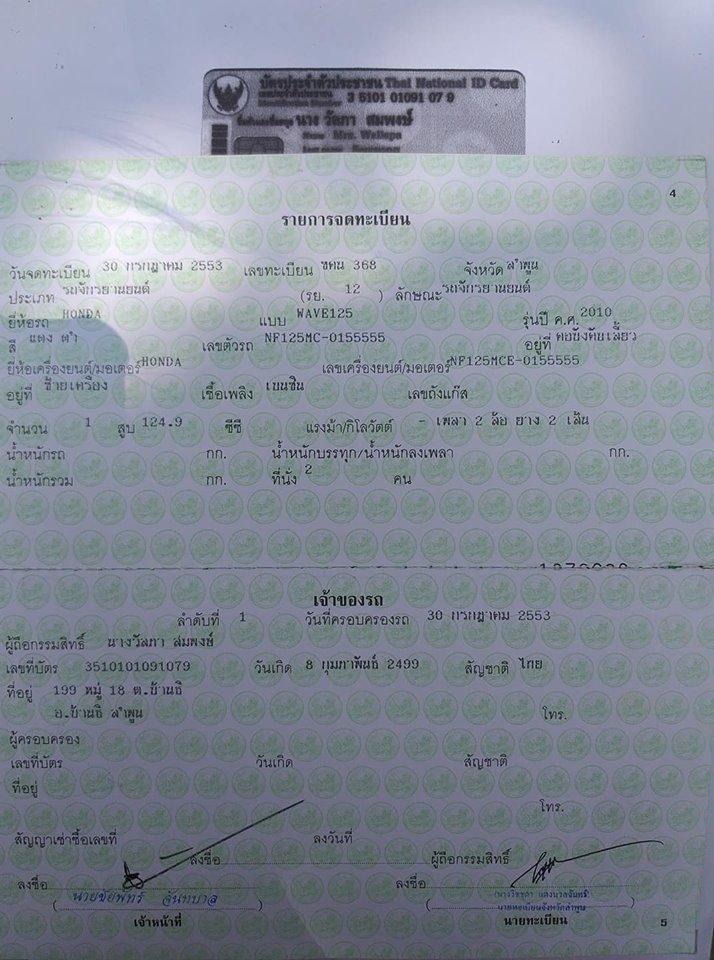 บัตรประจำตัวประชาชน Thai National ID Card
เลขประจำตัวประชาชน
Identification Number 3 5101 01091 07 9
ชื่อตัวและชื่อสกุล นาง วัลภา สมพงษ์
Name Mrs. Wallapa
4
รายการจดทะเบียน
วันจดทะเบียน 30 กรกฎาคม 2553 เลขทะเบียน ขคน 368 จังหวัด ลำพูน
ประเภท รถจักรยานยนต์ (รย. 12 ) ลักษณะ รถจักรยานยนต์
ยี่ห้อรถ HONDA แบบ WAVE125 รุ่นปี ค.ศ. 2010
สี แดง ดำ เลขตัวรถ NF125MC-0155555 อยู่ที่ คอบังคับเลี้ยว
ยี่ห้อเครื่องยนต์/มอเตอร์ HONDA เลขเครื่องยนต์/มอเตอร์ NF125MCE-0155555
อยู่ที่ ซ้ายเครื่อง เชื้อเพลิง เบนซิน เลขถังแก๊ส
จำนวน 1 สูบ 124.9 ซีซี แรงม้า/กิโลวัตต์ - เพลา 2 ล้อ ยาง 2 เส้น
น้ำหนักรถ กก. น้ำหนักบรรทุก/น้ำหนักลงเพลา กก.
น้ำหนักรวม กก. ที่นั่ง 2 คน
เจ้าของรถ
ลำดับที่ 1 วันที่ครอบครองรถ 30 กรกฎาคม 2553
ผู้ถือกรรมสิทธิ์ นางวัลภา สมพงษ์
เลขที่บัตร 3510101091079 วันเกิด 8 กุมภาพันธ์ 2499 สัญชาติ ไทย
ที่อยู่ 199 หมู่ 18 ต.บ้านธิ
อ.บ้านธิ ลำพูน โทร.
ผู้ครอบครอง
เลขที่บัตร วันเกิด สัญชาติ
ที่อยู่
โทร.
สัญญาเช่าซื้อเลขที่ ลงวันที่
ลงชื่อ ผู้ถือกรรมสิทธิ์
ลงชื่อ ลงชื่อ
( นายชัยพัทร์ จันทบาล ) ( )
นายทะเบียนจังหวัดลำพูน
เจ้าหน้าที่ นายทะเบียน 5